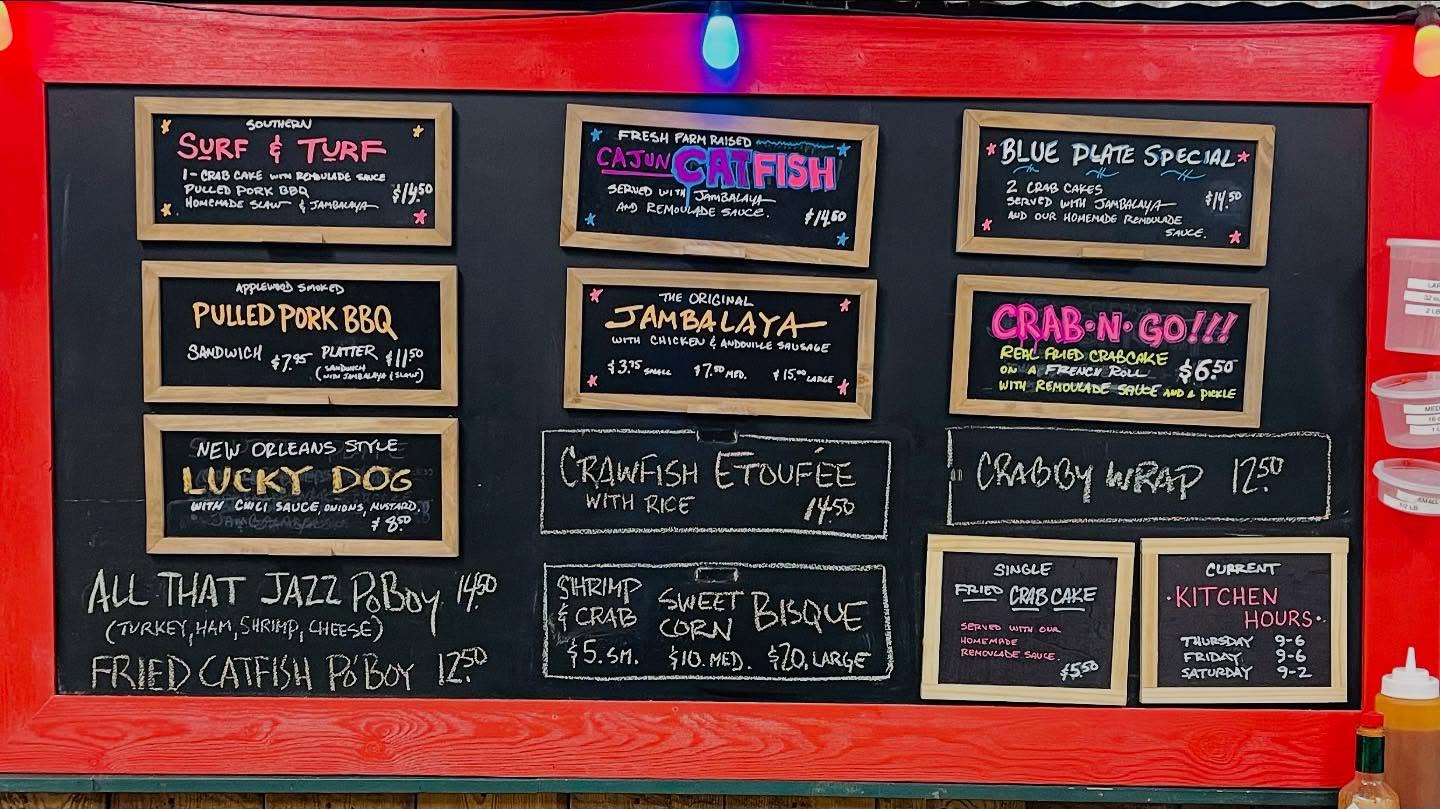 SOUTHERN
SURF & TURF
1 - CRAB CAKE WITH REMOULADE SAUCE
PULLED PORK BBQ
HOMEMADE SLAW & JAMBALAYA
$14.50
FRESH FARM RAISED
CAJUN CATFISH
SERVED WITH JAMBALAYA
AND REMOULADE SAUCE.
$14.50
BLUE PLATE SPECIAL
2 CRAB CAKES
SERVED WITH JAMBALAYA
AND OUR HOMEMADE REMOULADE
SAUCE.
$14.50
APPLEWOOD SMOKED
PULLED PORK BBQ
SANDWICH $7.95 PLATTER $11.50
(SANDWICH
WITH JAMBALAYA & SLAW)
THE ORIGINAL
JAMBALAYA
WITH CHICKEN & ANDOUILLE SAUSAGE
$3.75 SMALL $7.50 MED. $15.00 LARGE
CRAB·N·GO!!!
REAL FRIED CRABCAKE
ON A FRENCH ROLL
WITH REMOULADE SAUCE AND A PICKLE
$6.50
NEW ORLEANS STYLE
LUCKY DOG
WITH CHILI SAUCE, ONIONS, MUSTARD,
$8.50
CRAWFISH ETOUFÉE
WITH RICE 14.50
CRABBY WRAP 12.50
ALL THAT JAZZ PoBoy 14.50
(TURKEY, HAM, SHRIMP, CHEESE)
FRIED CATFISH Po'BOY 12.50
SHRIMP
& CRAB
SWEET
CORN
BISQUE
$5. SM. $10. MED. $20. LARGE
SINGLE
FRIED CRAB CAKE
SERVED WITH OUR
HOMEMADE
REMOULADE SAUCE.
$5.50
CURRENT
·KITCHEN
HOURS·
THURSDAY 9-6
FRIDAY 9-6
SATURDAY 9-2